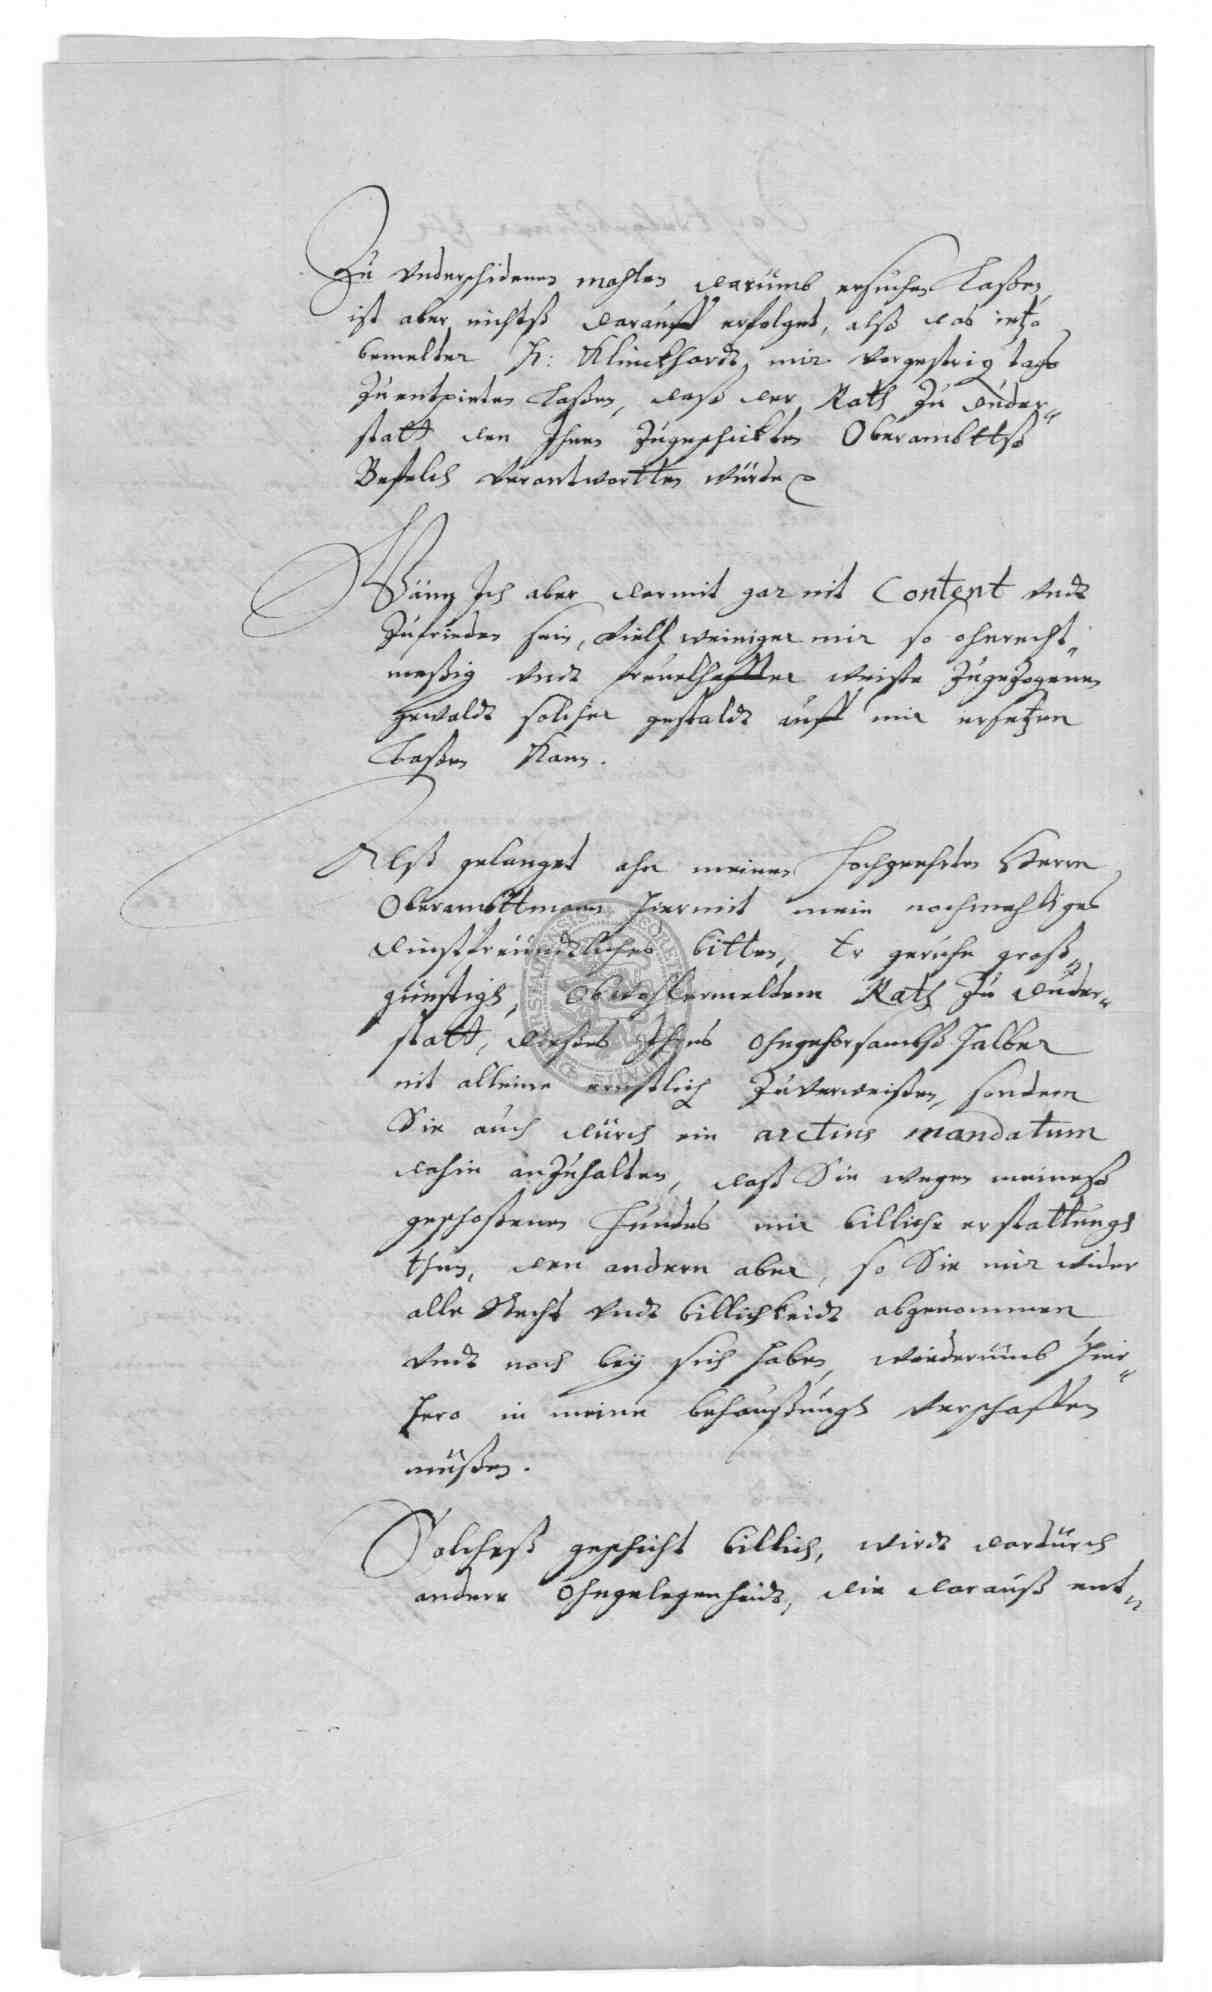 Zu underschidenen mahlen darumb ersuchen laßen,
ist aber nichtß darauff erfolget, alß das ietzo
bemelter H: Klinckhardt, mir vorgestrig tags
zuentpieten laßen, daß der Rath zu Duder„
statt den Ihnen zugeschickten Oberambttß
Befelch verantwortten würde
Wann Ich aber darmit gar nit Content undt
zufrieden sein, vielweiniger mir so ohnrecht„
meßig undt freuelhaffter weiße zugezogenen
gewaldt solcher gestaldt auff mir ersetzen
laßen kann.
Alß gelanget ahn meinen hochgeehrten Herrn
Oberambttmann hiermit mein nochmahliges
dienstfreundtliches bitten, Er geruhe groß„
günstigh, Obwohlermeltem Rath zu Duder„
statt, dießes Ihres ohngehorsambß halber
nit alleine ernstlich zuverweißen, sondern
Sie auch durch ein arctius mandatum
dahin anzuhalten, daß Sie wegen meineß
geschoßenen hundes mir billiche erstattungh
thun, den andern aber, so Sie mir wider
alle Recht undt billichkeidt abgenommen
undt noch bey sich haben, wiederumb hier„
hero in meine behaußungh verschaffen
müßen.
Solcheß geschicht billich, wirdt dardurch
andere ohngelegenheidt, die darauß ent„